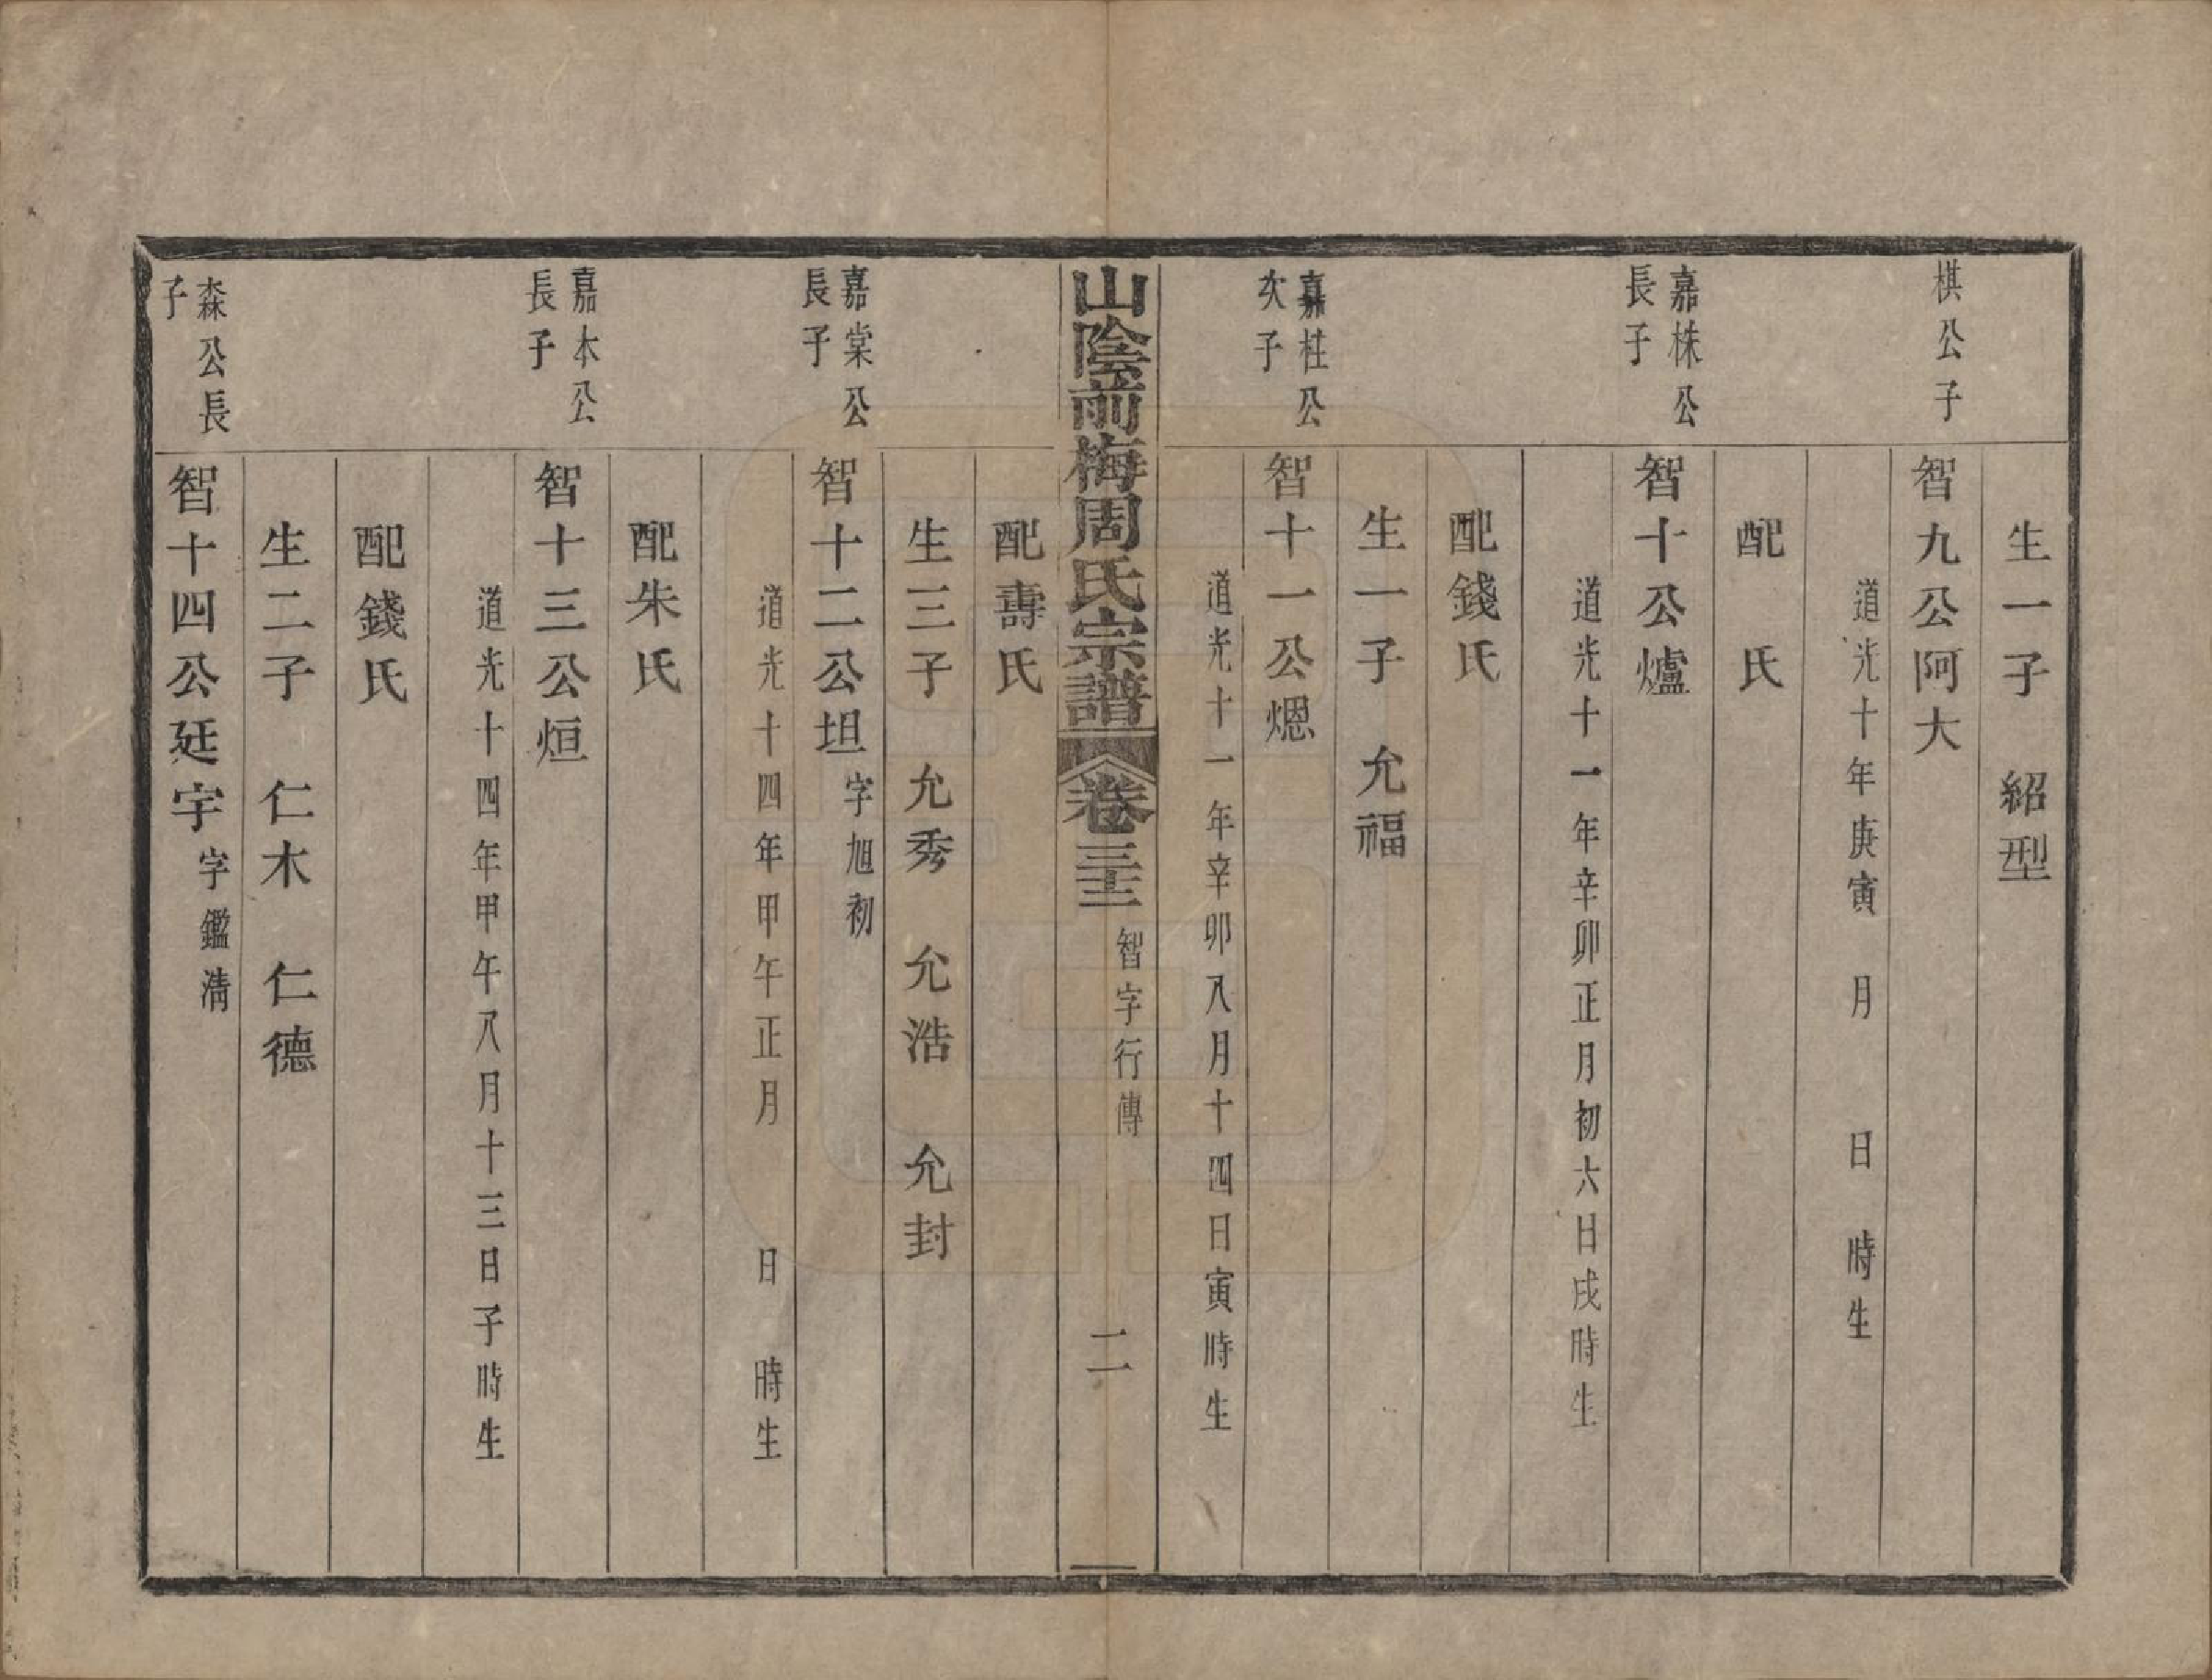 生一子　紹型
棋公子
智九公阿大
道光十年庚寅　月　　日　時生
配　氏
嘉株公
長子
智十公爐
道光十一年辛卯正月初六日戌時生
配錢氏
生一子　允福
嘉桂公
次子
智十一公煾
道光十一年辛卯八月十四日寅時生
山陰前梅周氏宗譜
卷三十二
智字行傳
二
配壽氏
生三子　允秀　允浩　允封
嘉棠公
長子
智十二公坦字旭初
道光十四年甲午正月　　日　時生
配朱氏
嘉木公
長子
智十三公烜
道光十四年甲午八月十三日子時生
配錢氏
生二子　仁木　仁德
森公長
子
智十四公廷宇字鑑清